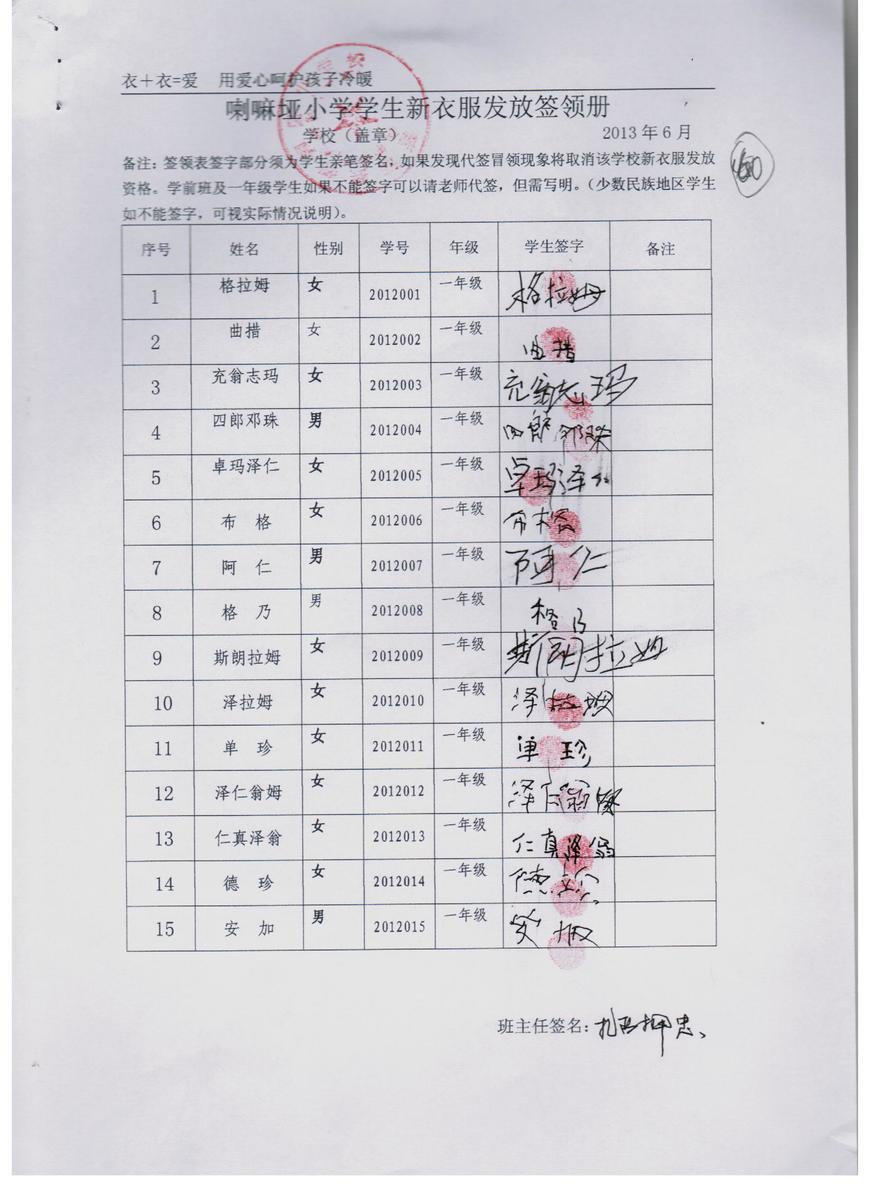 衣＋衣=爱 用爱心呵护孩子冷暖
喇嘛垭小学学生新衣服发放签领册
学校（盖章） 2013 年 6 月
备注：签领表签字部分须为学生亲笔签名，如果发现代签冒领现象将取消该学校新衣服发放
资格。学前班及一年级学生如果不能签字可以请老师代签，但需写明。（少数民族地区学生
如不能签字，可视实际情况说明）。
序号 姓名 性别 学号 年级 学生签字 备注
1 格拉姆 女 2012001 一年级 格拉姆
2 曲措 女 2012002 一年级 曲措
3 充翁志玛 女 2012003 一年级 充翁志玛
4 四郎邓珠 男 2012004 一年级 四郎邓珠
5 卓玛泽仁 女 2012005 一年级 卓玛泽仁
6 布 格 女 2012006 一年级 布格
7 阿 仁 男 2012007 一年级 阿仁
8 格 乃 男 2012008 一年级 格乃
9 斯朗拉姆 女 2012009 一年级 斯朗拉姆
10 泽拉姆 女 2012010 一年级 泽拉姆
11 单 珍 女 2012011 一年级 单珍
12 泽仁翁姆 女 2012012 一年级 泽仁翁姆
13 仁真泽翁 女 2012013 一年级 仁真泽翁
14 德 珍 女 2012014 一年级 德珍
15 安 加 男 2012015 一年级 安加
班主任签名：扎西押忠